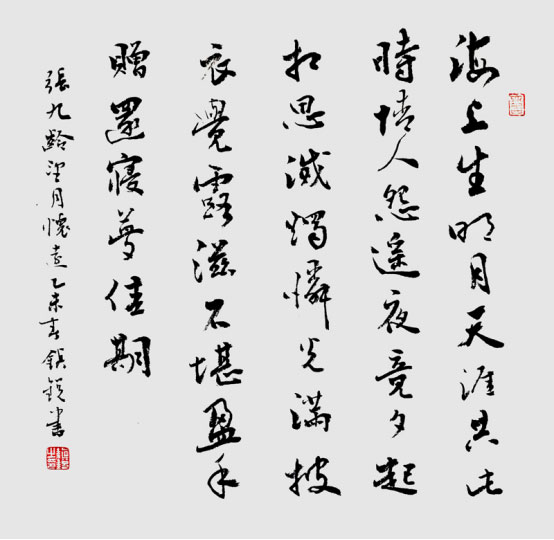 海上生明月天涯共此
時情人怨遙夜竟夕起
相思滅燭憐光滿披
衣覺露滋不堪盈手
贈還寢夢佳期
張九齡望月懷遠乙未春書